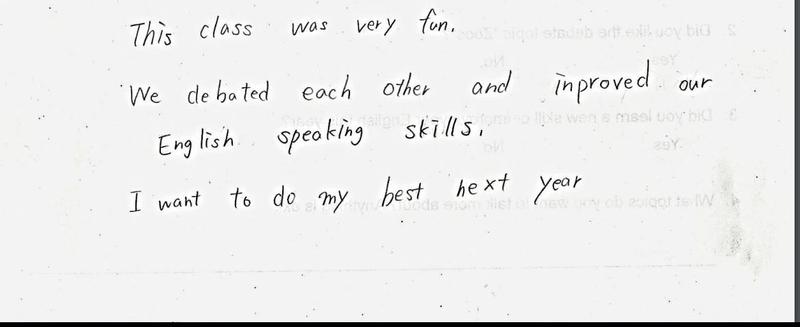 This class was very fun.
We debated each other and inproved our
English speaking skills.
I want to do my best next year